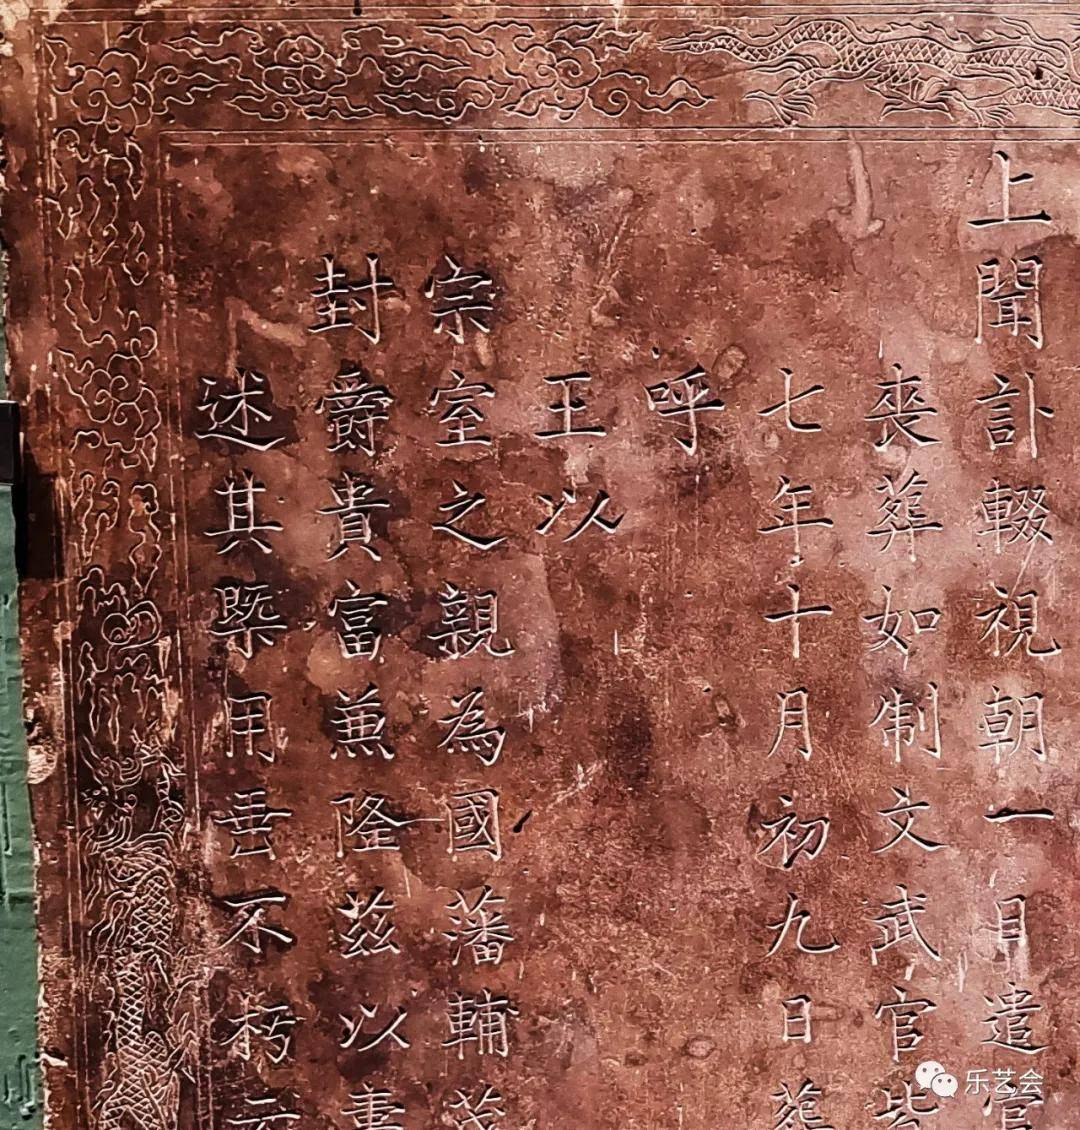 上聞訃輟視朝一日遣官
喪葬如制文武官皆
七年十月初九日葬
呼
王以
宗室之親為國藩輔
封爵貴富兼隆茲以
述其槩用垂不朽云
乐艺会